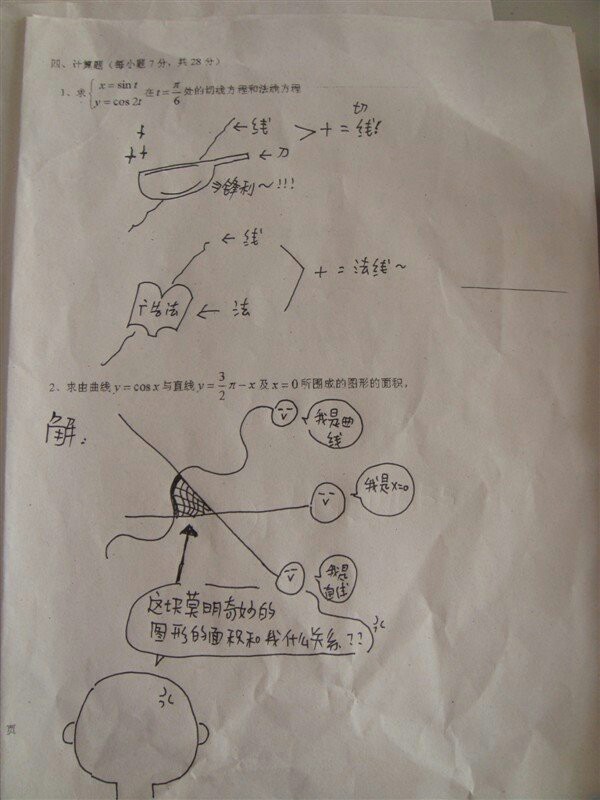 四、计算题（每小题7分，共28分）
1、求{x = sin t
y = cos 2t 在 t = π/6 处的切线方程和法线方程
← 线
> + = 切线!
← 刀
⇒锋利～!!!
← 线
← 法
+ = 法线～
2、求由曲线 y = cos x 与直线 y = 3/2 π - x 及 x = 0 所围成的图形的面积。
解：
我是曲
线
我是x=0
我是
直线
这块莫明奇妙的
图形的面积和我什么关系??
页